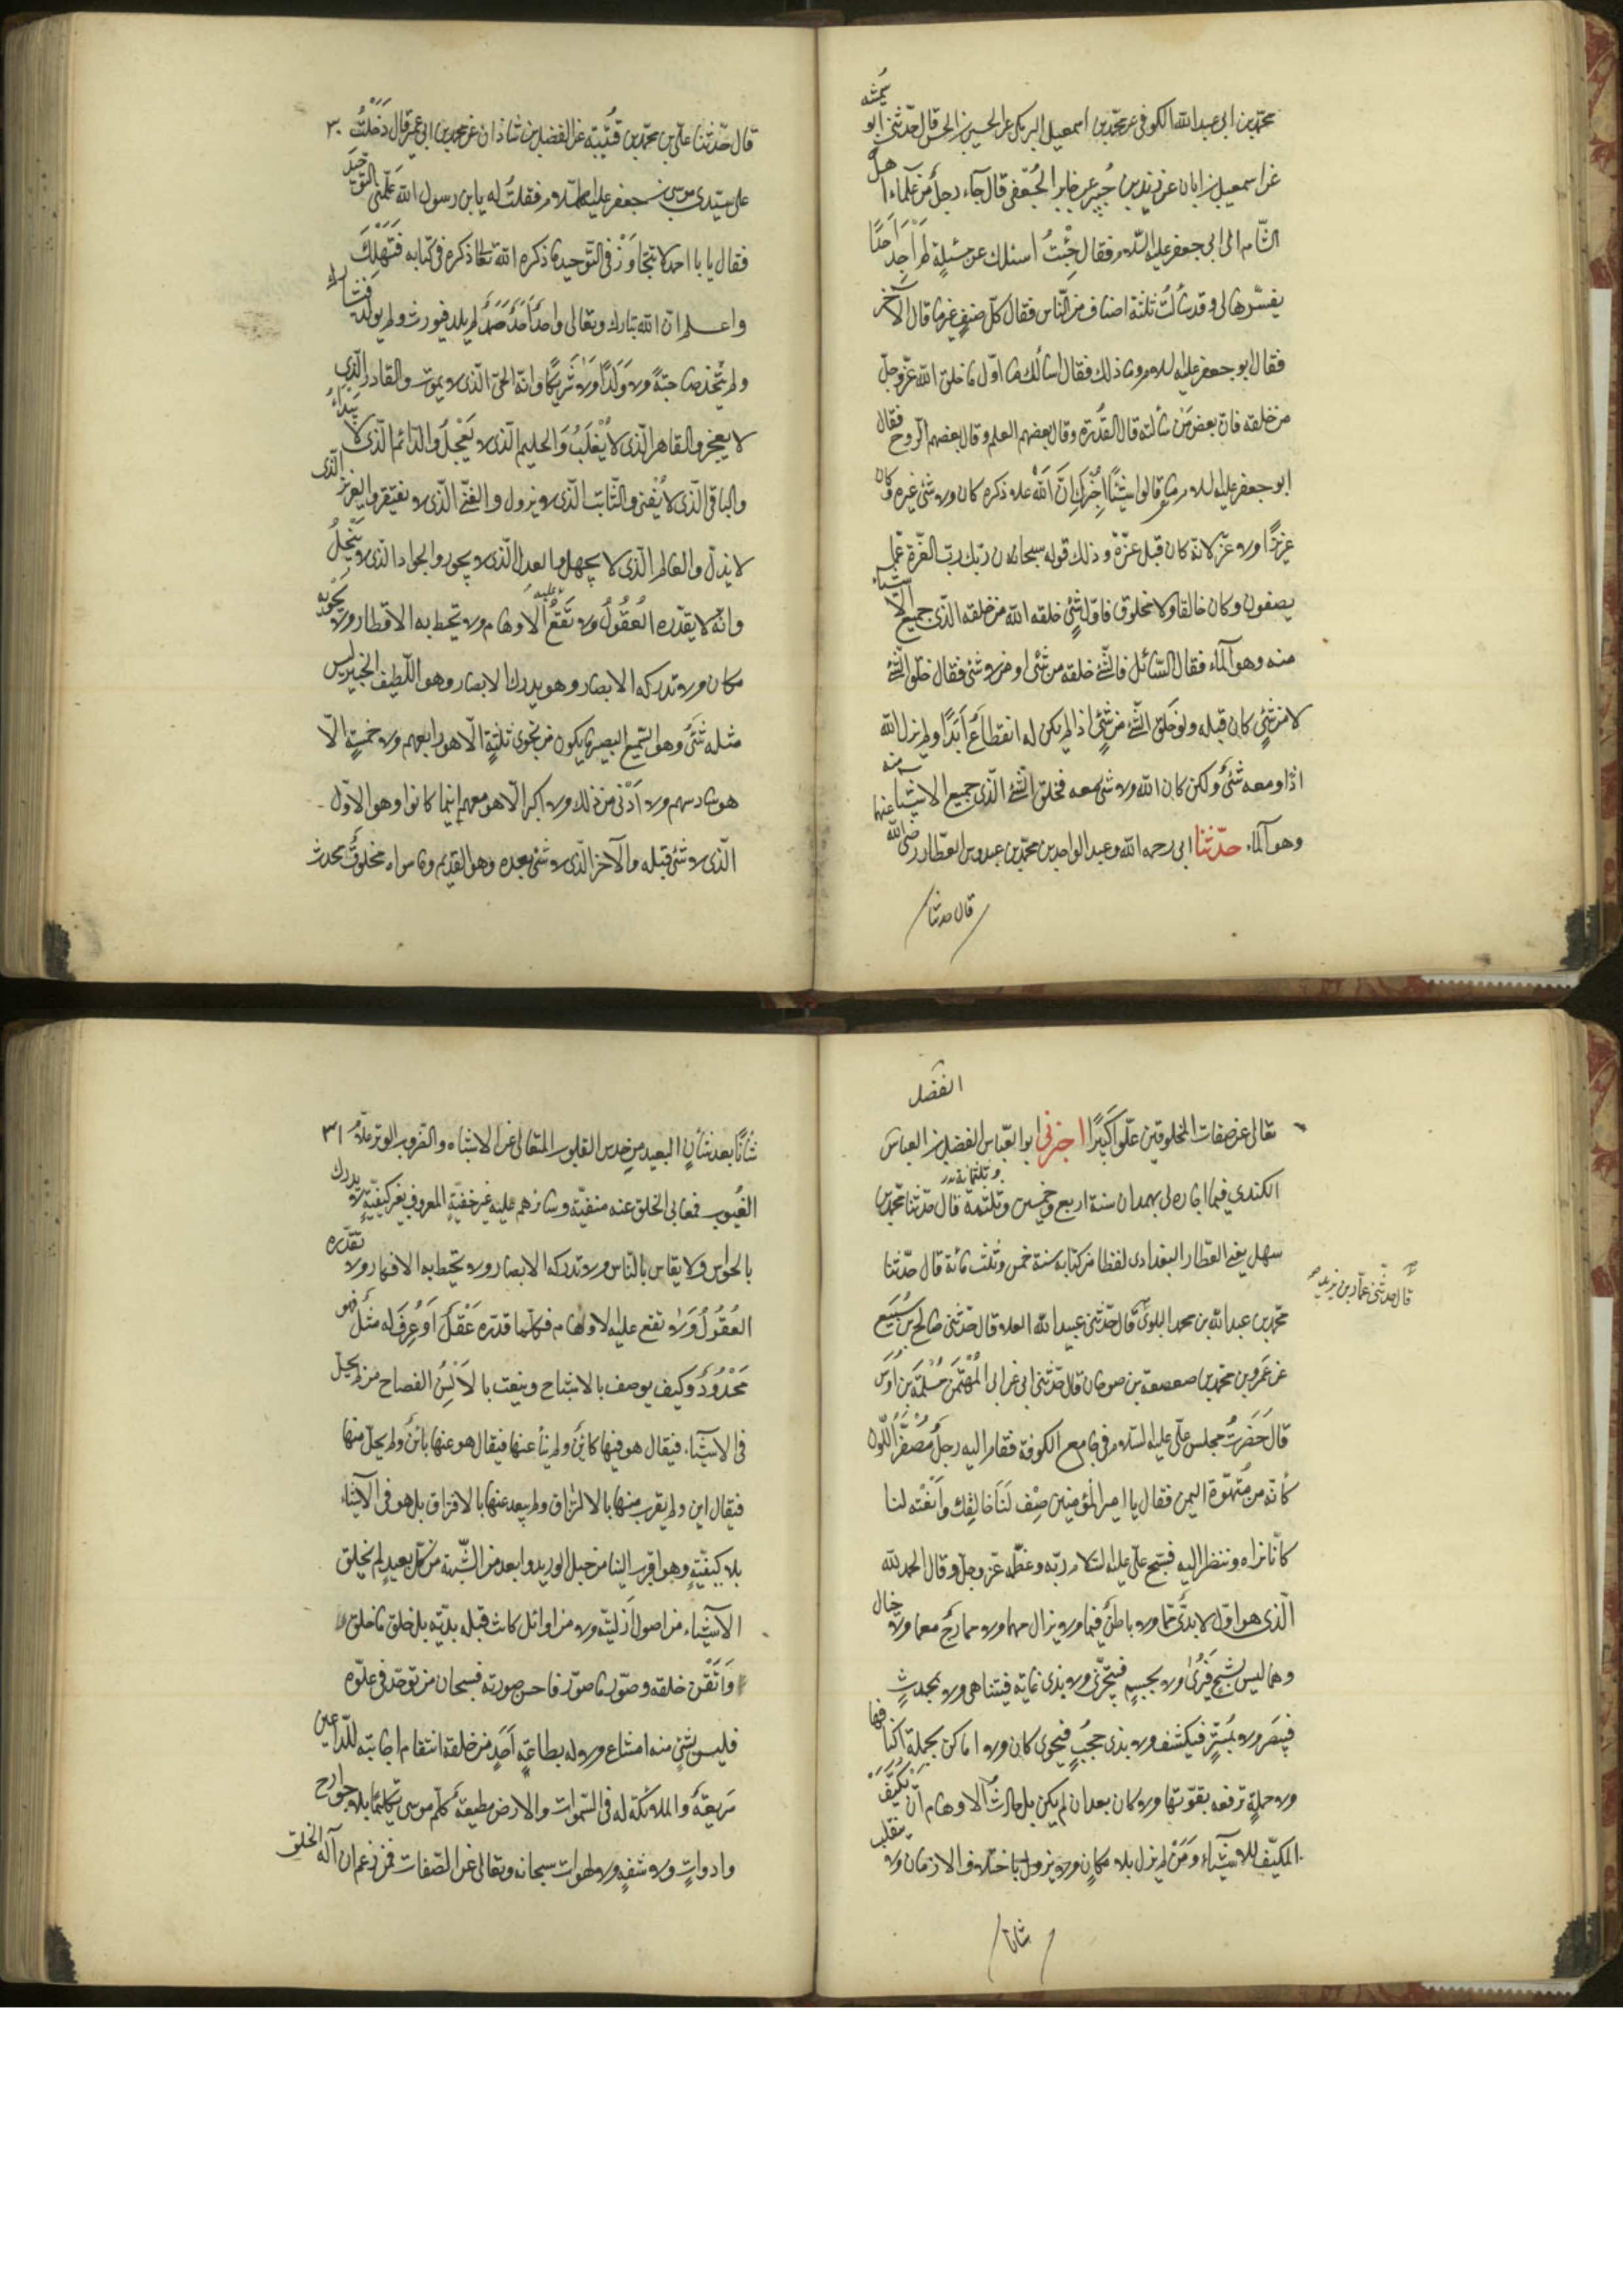 محمّد بن ابى عبد الله الكوفى عن محمّد بن اسمعيل البرمكى عن الحسين بن الحسن قال حدّثنى ابو سُمينه
عن اسمعيل بن ابان عن زيد بن جُبير عن جابر الجُعفى قال جاء رجل من علماء اهل
الشّام الى ابى جعفر عليه السّلام فقال جِئْتُ اسئلك عن مسئلة لم اَجِد اَحَدًا
يفسّرها لى وقد سألتُ ثلثة اصناف من النّاس فقال كلّ صنفٍ غير ما قال الآخر
فقال ابو جعفر عليه السلام وما ذلك فقال اسألك ما اوّل ما خلق الله عزّ وجلّ
من خلقه فانّ بعض مَن سألته قال القُدرة وقال بعضهم العلم وقال بعضهم الرّوح فقال
ابو جعفر عليه السلام ما قالوا شيئًا اُخْبِرك اَنَّ اللهَ علا ذكره كان ولا شئ غيره وكان
عزيزًا ولا عزّ لانّه كان قبل عزّة وذلك قوله سبحان ربّك ربّ العزّة عمّا
يصفون وكان خالقا ولا مخلوق فاوّل شئٍ خلقه الله من خلقه الّذى جميع الاشياء
منه وهو الماء فقال السّائل فالشّئ خلقه من شئ او من لا شئ فقال خلق الشّئ
لا من شئٍ كان قبله ولو خلق الشّئ من شئٍ اذا لم يكن له انقطاعٌ اَبَدًا ولم يزل الله
اذًا ومعه شئٌ ولكن كان الله ولا شئ معه فخلق الشّئ الّذى جميع الاشياء منه
وهو الماء حدّثنا ابى رحمه الله وعبد الواحد بن محمّد بن عبدوس العطّار رضى الله عنهما
قال حدثنا
قال حدّثنا علىّ بن محمّد بن قُتَيْبة عن الفضل بن شاذان عن محمد بن ابى عمير قال دَخَلْتُ ٣٠
على سيّدى موسى بن جعفر عليه السّلام فقلتُ له يا بن رسول الله علّمنى التوحيد
فقال يا با احمد لا تتجاوَزْ فى التّوحيد ما ذكره الله تعالى ذكره فى كتابه فَتَهْلِكَ
واعلم انّ الله تبارك وتعالى واحدٌ اَحَدٌ صَمَدٌ لم يلد فيورث ولم يولد فيشارك
ولم يتّخذ صاحبَةً ولا وَلَدًا ولا شَرِيكًا وانّه الحىّ الّذى لا يموت والقادر الّذى
لا يعجز والقاهر الّذى لا يُغْلَبُ وَالحليم الّذى لا يَعْجَلُ والدّائم الّذى لا يَبيدُ
والباقى الّذى لا يَفنى والثّابت الّذى لا يزول والغنىّ الّذى لا يفتقر والعزيز الّذى
لا يذلّ والعالم الّذى لا يجهل والعدل الّذى لا يجور والجواد الّذى لا يَبْخَلُ
وانّه لا يقدّره العُقُولُ ولا تَقَعُ عليه الاوهام ولا تحيط به الاقطار ولا يَحْويه
مكان ولا تدركه الابصار وهو يدرك الابصار وهو اللّطيف الخبير ليس
مثله شئٌ وهو السّميع البصير ما يكون من نجوى ثلثةٍ الّا هو رابعهم ولا خمسةٍ الّا
هو سادسهم ولا اَدْنى من ذلك ولا اكبر الّا هو معهم اينما كانوا وهو الاوّل
الّذى لا شئ قبله والآخر الّذى لا شئ بعده وهو القديم وما سواه مخلوقٌ محدث
الفضل
تعالى عن صفات المخلوقين علوّا كَبيرًا اخبرنى ابو العبّاس الفضل بن العباس
الكندى فيما اجازه لى بهمدان سنة اربع وخمسين وثلثمة قال حدّثنا محمّد بن
سهل يعنى العطّار البغدادى لفظا من كتابه سنة خمس وثلث مائة قال حدّثنا
محمّد بن عبد الله بن محمد البلوىّ قال حدّثنى عبيد الله العلا قال حدّثنى صالح بن سُبَيع
قال حدثنى عمارة بن زيد
عن عَمرو بن محمّد بن صعصعة بن صوحان قال حدّثنى ابى عن ابى المُعْتَمَر مُسْلِمَ بن اَوْسٍ
قال حَضَرتُ مجلس علىّ عليه السّلام فى جامع الكوفة فقام اليه رجلٌ مُصْفَرُّ اللّون
كأنّه من مُتَهَوِّدة اليمن فقال يا امير المؤمنين صِفْ لَنَا خالِقك وَانْعَته لنا
كانّا نراه وننظر اليه فسبّح علىّ عليه السّلام ربّه وعظّمه عزّ وجلّ وقال الحمد لله
الّذى هو اوّل لا بدئٌ ممّا ولا باطنٌ فيما ولا يزال مهما ولا ممازجٌ معما ولا خيال
وهما ليس بشبحٍ فيُرى ولا بجسمٍ فيتجزّى ولا بذى غايةٍ فيتناهى ولا بمحدثٍ
فيبصر ولا بمُستترٍ فيكشف ولا بذى حجبٍ فيحوى كان ولا اماكن تحمله اكنافها
ولا حملةٌ ترفعه بقوّتها ولا كان بعد ان لم يكن بل حارت الاوهام ان تكيّف
المكيّف للاشياء وَمَنْ لم يزل بلا مكانٍ ولا يزول باختلاف الازمان ولا ينقلب
شانا
شانًا بعد شانٍ البعيد من حدس القلوب المتعالى عن الاشباه والضّروب الوتر علّام ٣١
الغُيوب فمعانى الخلق عنه منفيّة وسرائرهم عليه غير خفيّةٍ المعروف بغير كيفيّةٍ لا يدرك
بالحواسّ ولا يقاس بالنّاس ولا تدركه الابصار ولا تحيط به الافكار ولا تقدّره
العُقُولُ وَلا تقع عليه الاوهام فكلّما قدّره عَقْلٌ اَوْ عُرِفَ له مثلٌ فهو
مَحْدُودٌ وكيف يوصف بالاشباح وينعت بالاَلْسُنِ الفصاح من لم يحلل
فى الاشياء فيقال هو فيها كائنٌ ولم ينأ عنها فيقال هو عنها بائنٌ ولم يخل منها
فيقال اين ولم يقرب منها بالالتزاق ولم يبعد عنها بالافتراق بل هو فى الاشياء
بلا كيفيّةٍ وهو اقرب الينا من حبل الوريد وابعد من الشّبهة من كلّ بعيدٍ لم يخلق
الاشياء من اصول اَزَليّة ولا من اوائل كانت قبله بديّة بل خلق ما خلق
وَاَتْقَنَ خلقه وصوّر ما صوّر فاحسن صورته فسبحان من توحّد فى علوّه
فليس لشئٍ منه امتناع ولا له بطاعةِ اَحَدٍ من خلقه انتفاع اجابته للدّاعين
سَريعَةٌ والملائكة له فى السّموات والارض مطيعَةٌ كلّم موسى تكليمًا بلا جوارح
وادواتٍ ولا شفةٍ ولا لهوات سبحانه وتعالى عن الصّفات فمن زعم ان آله الخلق